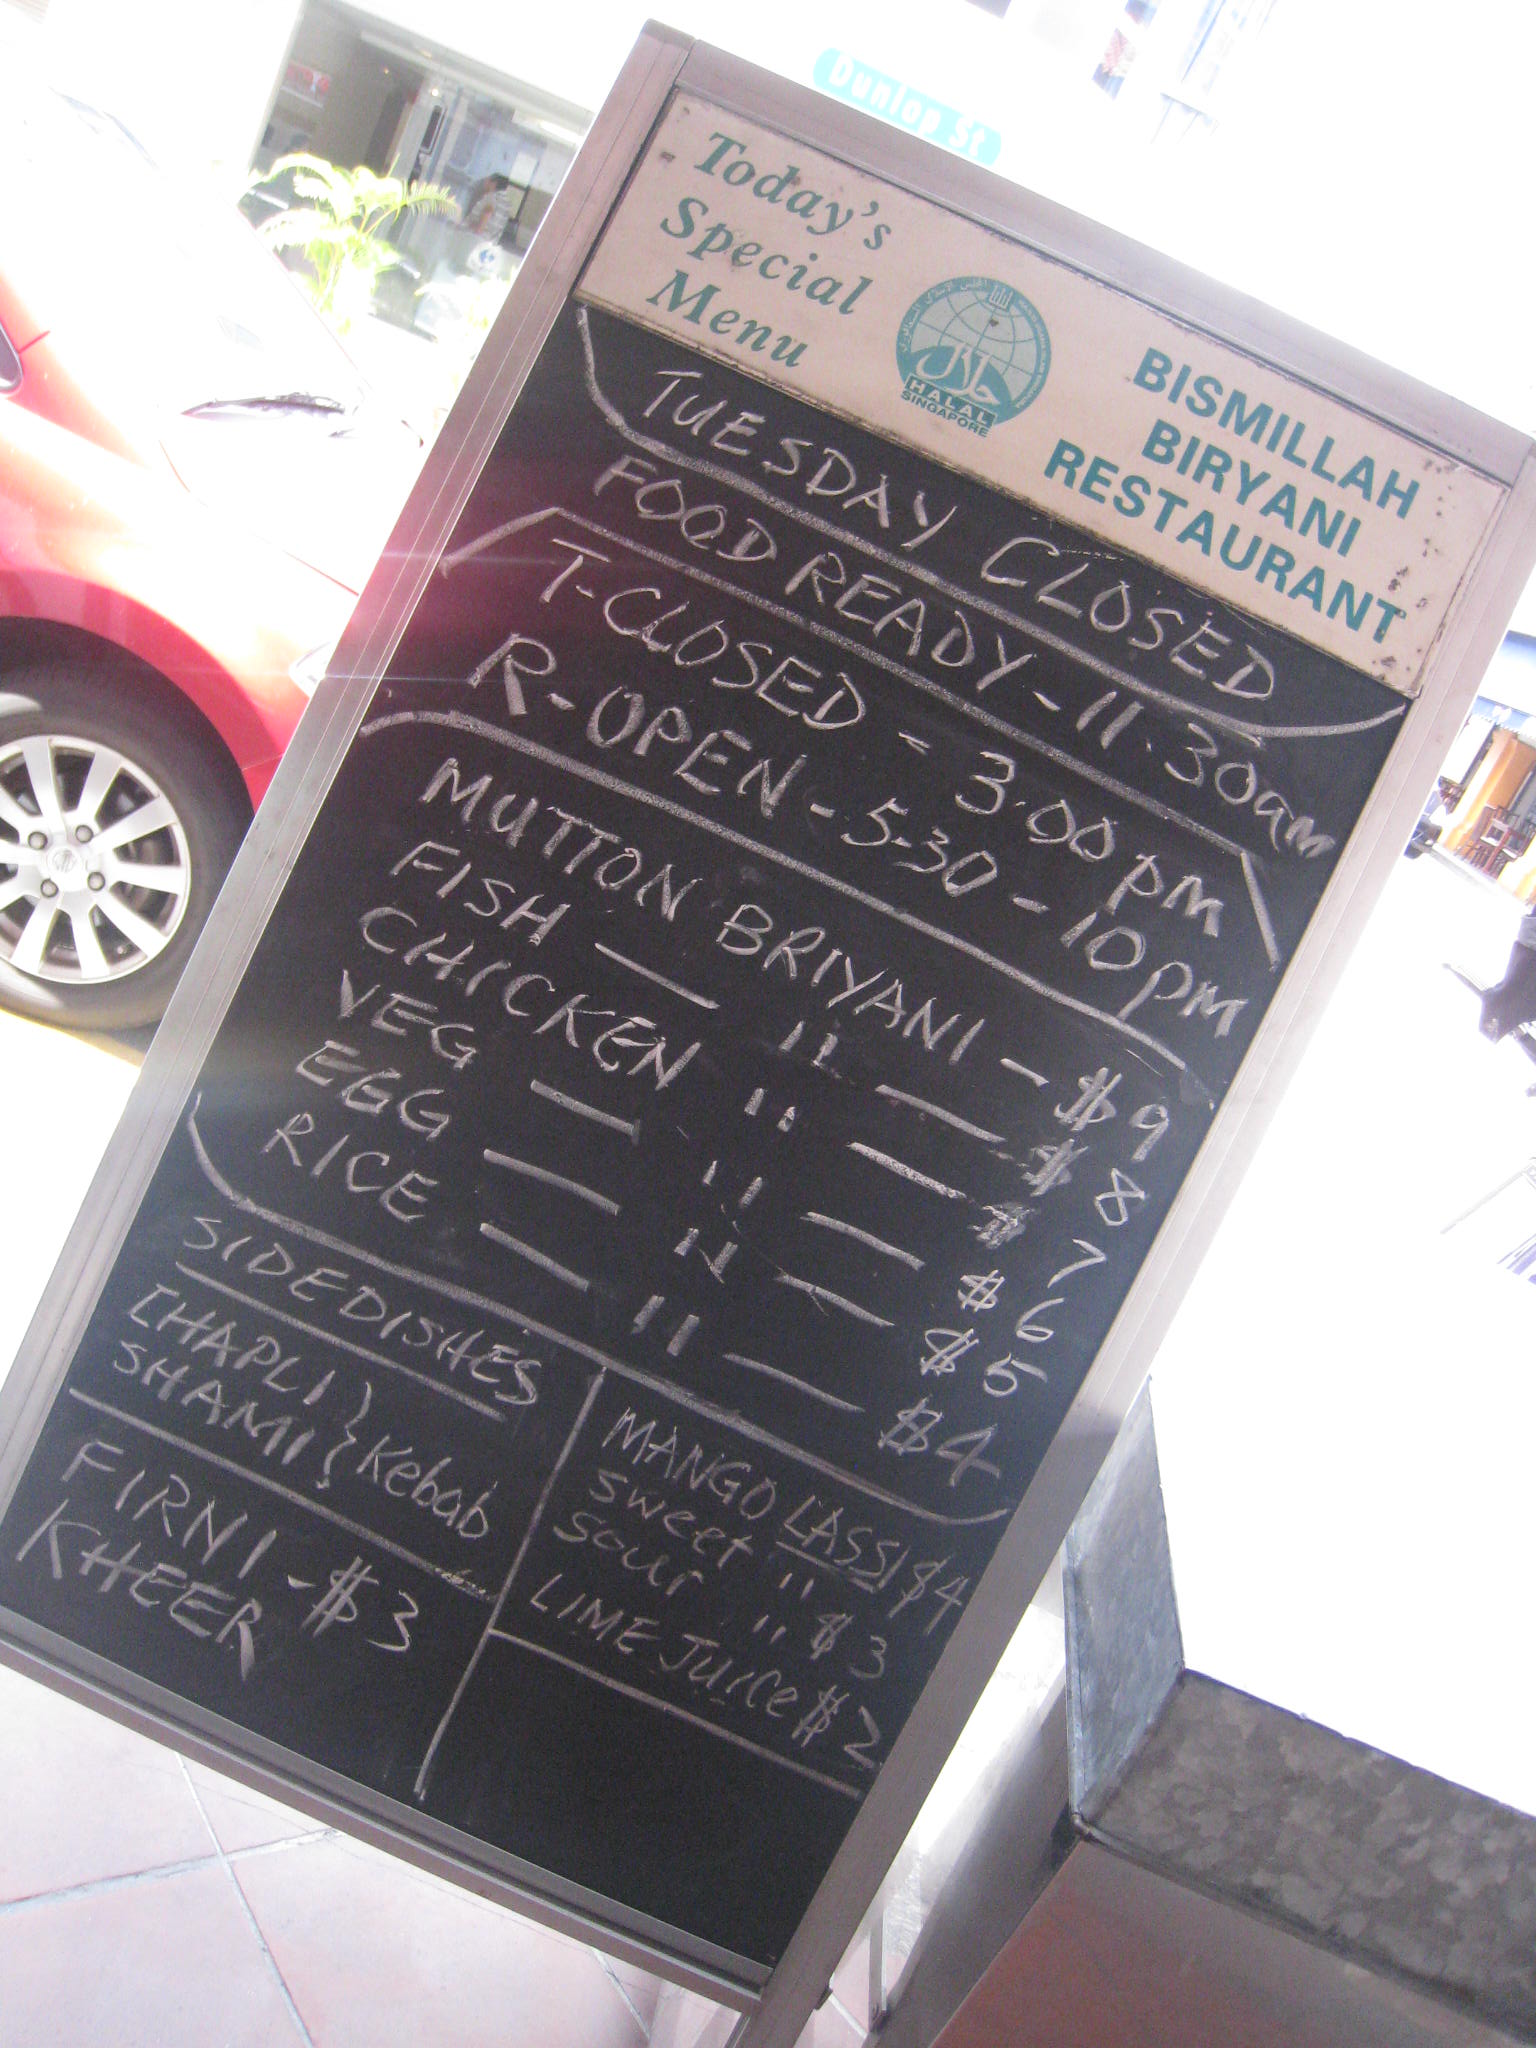 Dunlop St
Today's
Special
Menu
HALAL
SINGAPORE
BISMILLAH
BIRYANI
RESTAURANT
TUESDAY CLOSED
FOOD READY - 11.30am
T-CLOSED - 3.00 pM
R-OPEN - 5.30 - 10 pM
MUTTON BRIYANI - $9
FISH — " — $ 8
CHICKEN " — $ 7
VEG — " — $ 6
EGG — " — $ 5
RICE — " — $4
SIDEDISHES
CHAPLI } Kebab
SHAMI
FIRNI - $3
KHEER
MANGO LASSI $4
sweet "
sour " $3
LIME JUICE $2